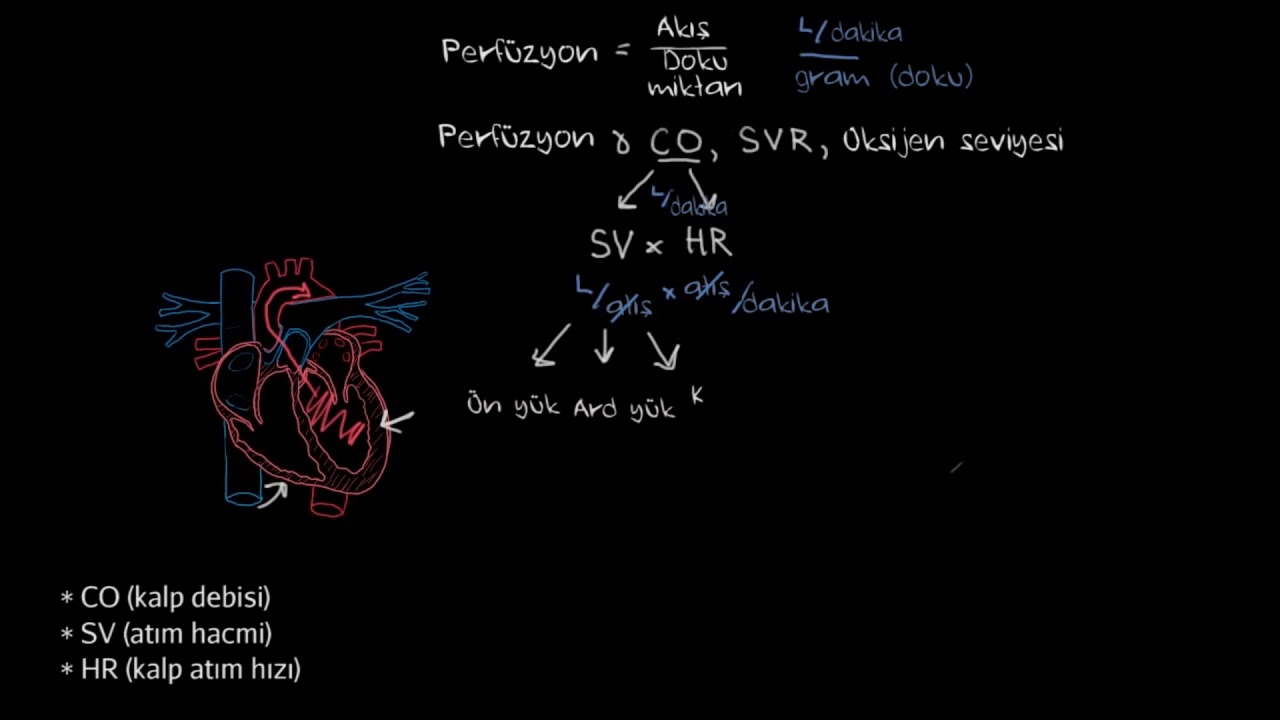 Perfüzyon = Akış / Doku miktarı L/dakika / gram (doku)
Perfüzyon ∝ CO, SVR, Oksijen seviyesi
L/dakika
SV x HR
L/atış x atış/dakika
Ön yük Ard yük K
* CO (kalp debisi)
* SV (atım hacmi)
* HR (kalp atım hızı)